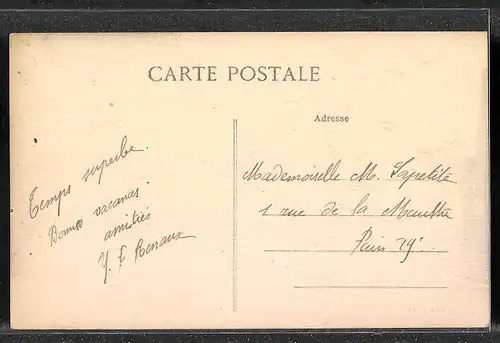 CARTE POSTALE
Adresse
Temps superbe.
Bonnes vacances
amitiés
Mademoiselle M. Lapetite
1 rue de la Meurthe
Paris 19e